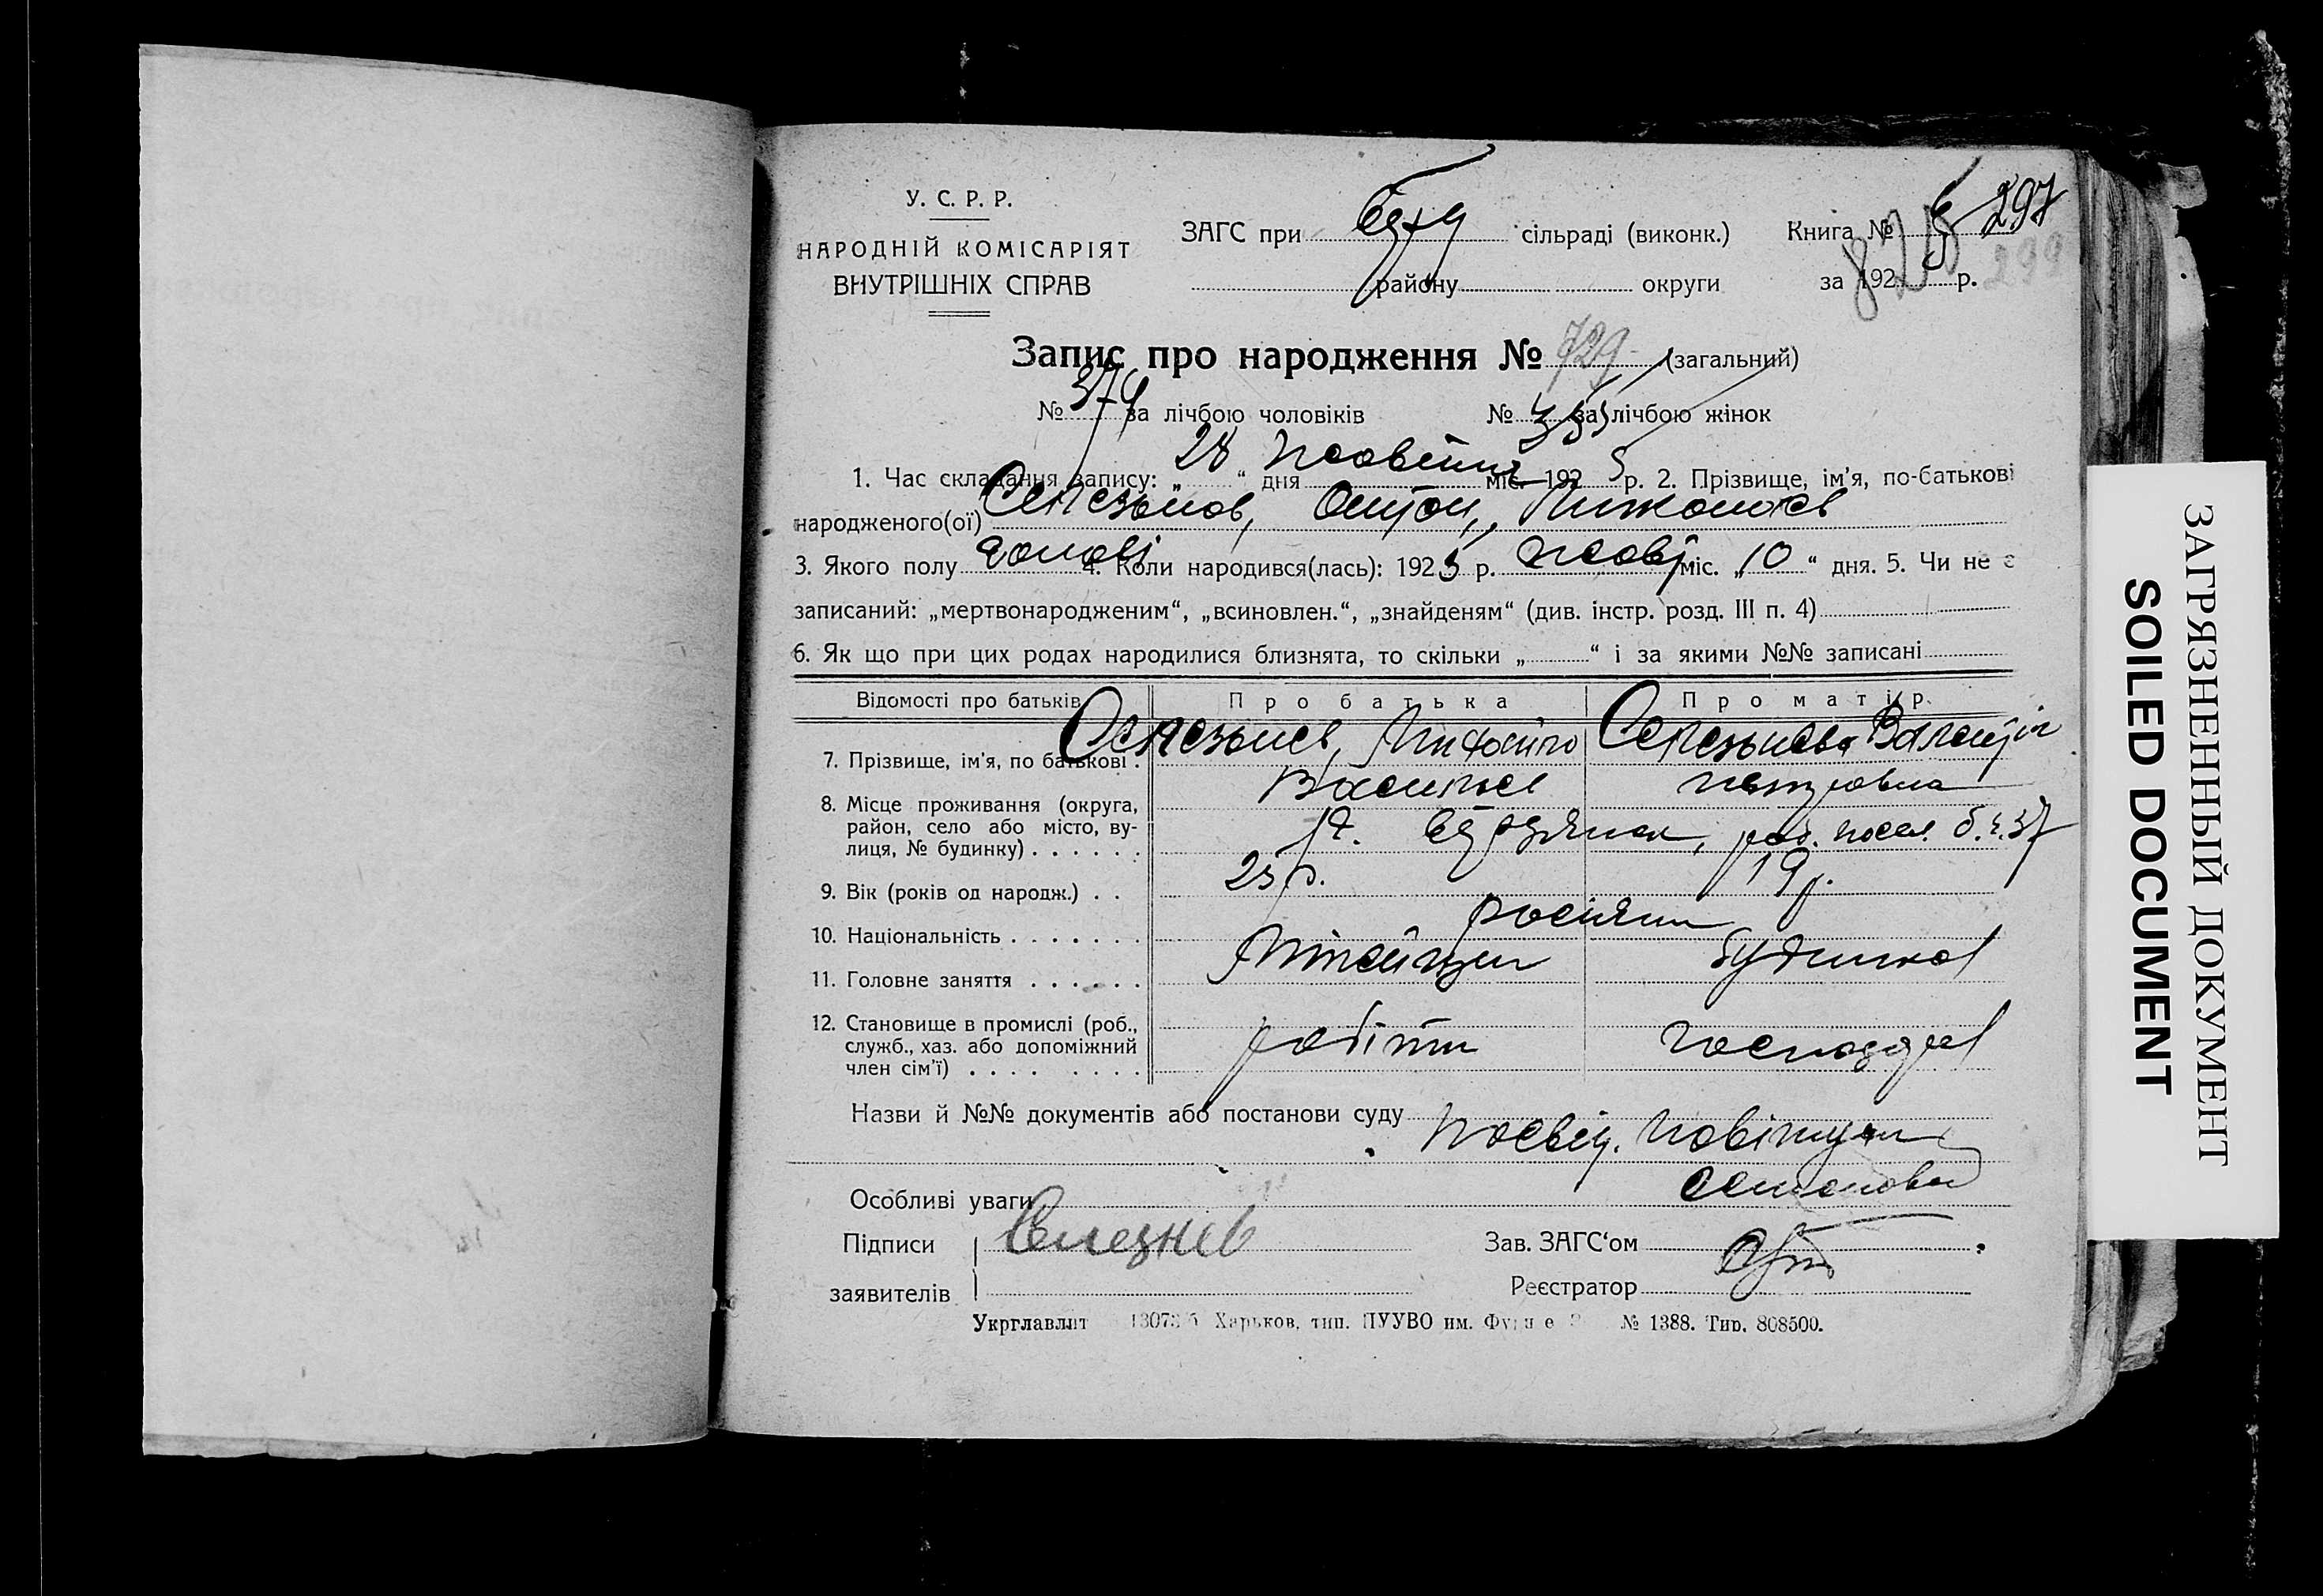 У. С. Р. Р.
НАРОДНІЙ КОМІСАРІЯТ
ВНУТРІШНІХ СПРАВ
ЗАГС при сільраді (виконк.)
району округи
Книга № 6 297
299
за 192 р.
Запис про народження № 729 (загальний)
№ 374 за лічбою чоловіків № 355 за лічбою жінок
1. Час складання запису: „ 28 “ дня Жовтня міс. 192 5 р. 2. Прізвище, ім’я, по-батькові
народженого(ої) Селезньов,
3. Якого полу чолові 4. Коли народився(лась): 192 5 р. Жовт міс. „ 10 “ дня. 5. Чи не є
записаний: „мертвонародженим“, „всиновлен.“, „знайденям“ (див. інстр. розд. III п. 4)
6. Як що при цих родах народилися близнята, то скільки „ “ і за якими №№ записані
Відомості про батьків Про батька Про матір.
7. Прізвище, ім’я, по батькові . Селезньов, Селезньова
Васильев петровна
8. Місце проживання (округа,
район, село або місто, ву-
лиця, № будинку) . . . . . . роб. посел. б. ч. 37
9. Вік (років од народж.) . . 25 р. 19 р.
10. Національність . . . . . . . росіяни
11. Головне заняття . . . . . .
12. Становище в промислі (роб.,
служб., хаз. або допоміжний
член сім’ї) . . . . . . . . робітн господар
Назви й №№ документів або постанови суду Посвід.
Особливі уваги
Підписи Селезнев Зав. ЗАГС‘ом
заявителів Реєстратор
Укрглавліт Харьков, тип. ПУУВО им. № 1388. Тир. 808500.
ЗАГРЯЗНЕННЫЙ ДОКУМЕНТ
SOILED DOCUMENT